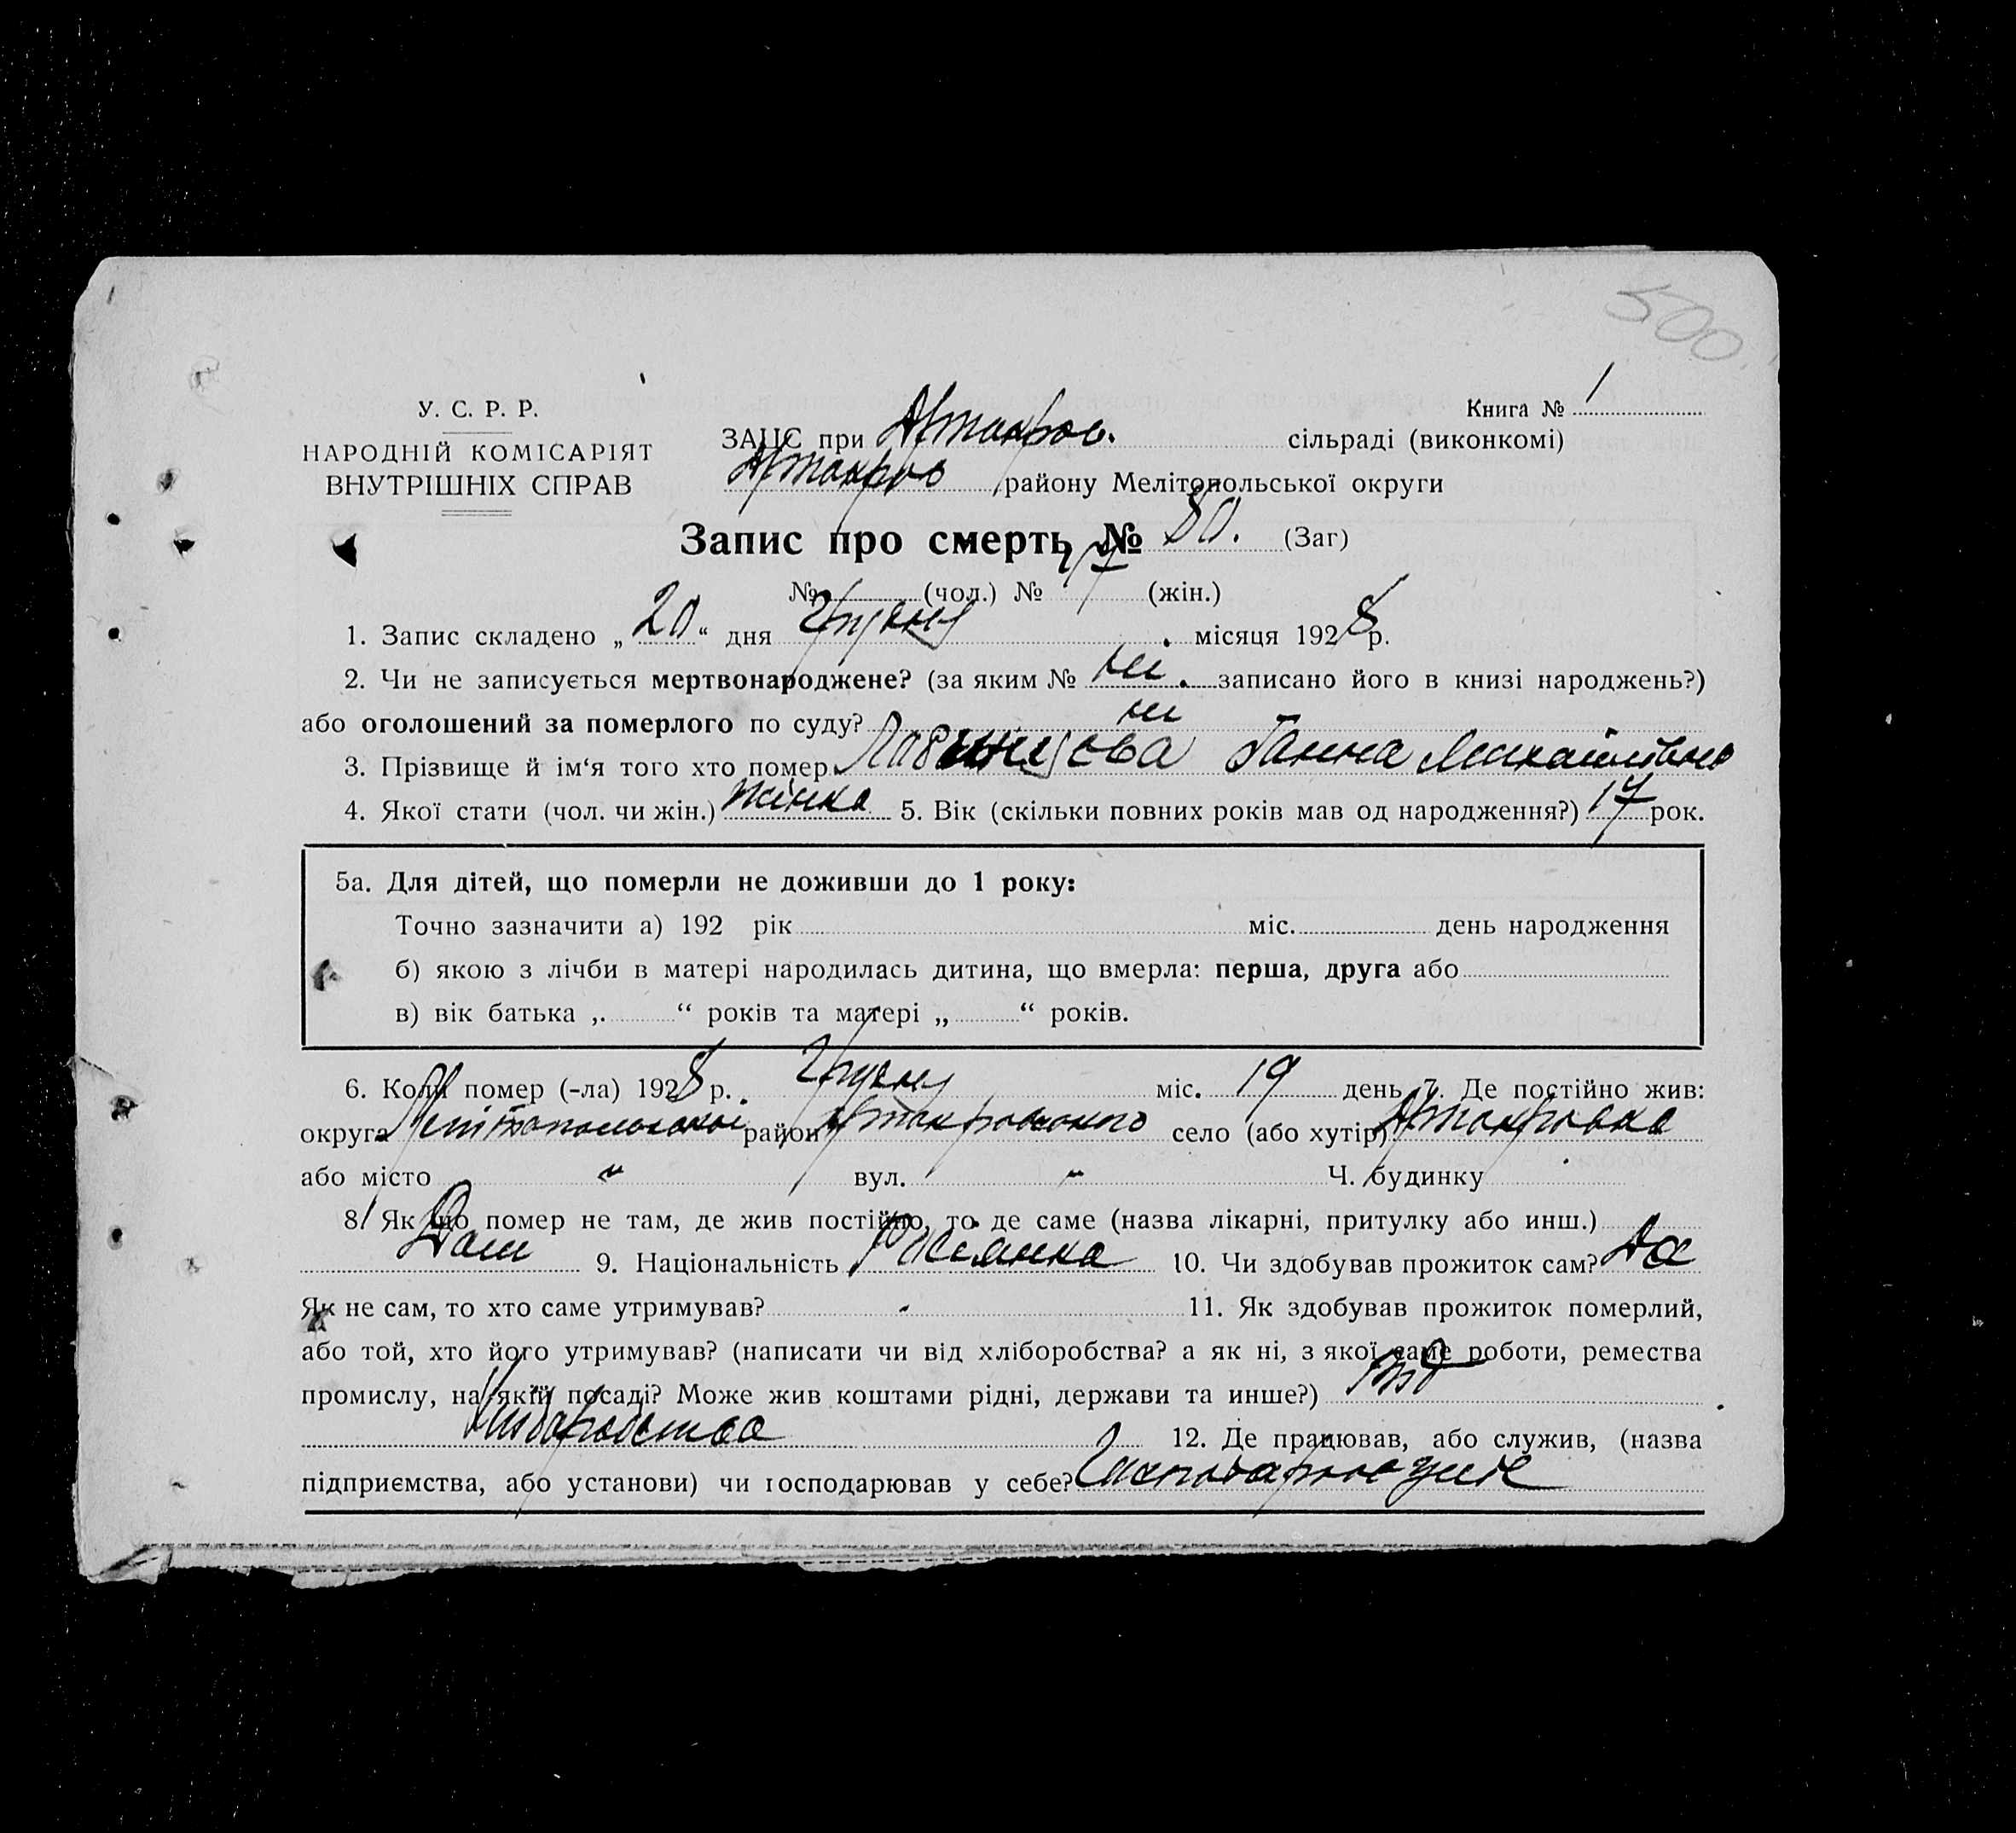 500
У. С. Р. Р.
НАРОДНІЙ КОМІСАРІЯТ
ВНУТРІШНІХ СПРАВ
Книга № 1
ЗАЦС при Якимов. сільраді (виконкомі)
району Мелітопольської округи
Запис про смерть № 80. (Заг)
№ (чол.) № (жін.)
1. Запис складено „ 20 “ дня Грудня місяця 1928 р.
2. Чи не записується мертвонароджене? (за яким № ні. записано його в книзі народжень?)
або оголошений за померлого по суду? ні
3. Прізвище й ім‘я того хто помер Ганна Михайлівна
4. Якої стати (чол. чи жін.) жінка 5. Вік (скільки повних років мав од народження?) 17 рок.
5а. Для дітей, що померли не доживши до 1 року:
Точно зазначити а) 192 рік міс. день народження
б) якою з лічби в матері народилась дитина, що вмерла: перша, друга або
в) вік батька „ “ років та матері „ “ років.
6. Коли помер (-ла) 1928 р. Грудня міс. 19 день 7. Де постійно жив:
округа Мелітопольської район село (або хутір)
або місто " вул. " Ч. будинку
8. Як що помер не там, де жив постійно, то де саме (назва лікарні, притулку або инш.)
9. Національність Росіянка 10. Чи здобував прожиток сам? Да
Як не сам, то хто саме утримував? - 11. Як здобував прожиток померлий,
або той, хто його утримував? (написати чи від хліборобства? а як ні, з якої саме роботи, ремества
промислу, на якій посаді? Може жив коштами рідні, держави та инше?) Від
Хліборобства 12. Де працював, або служив, (назва
підприємства, або установи) чи господарював у себе?